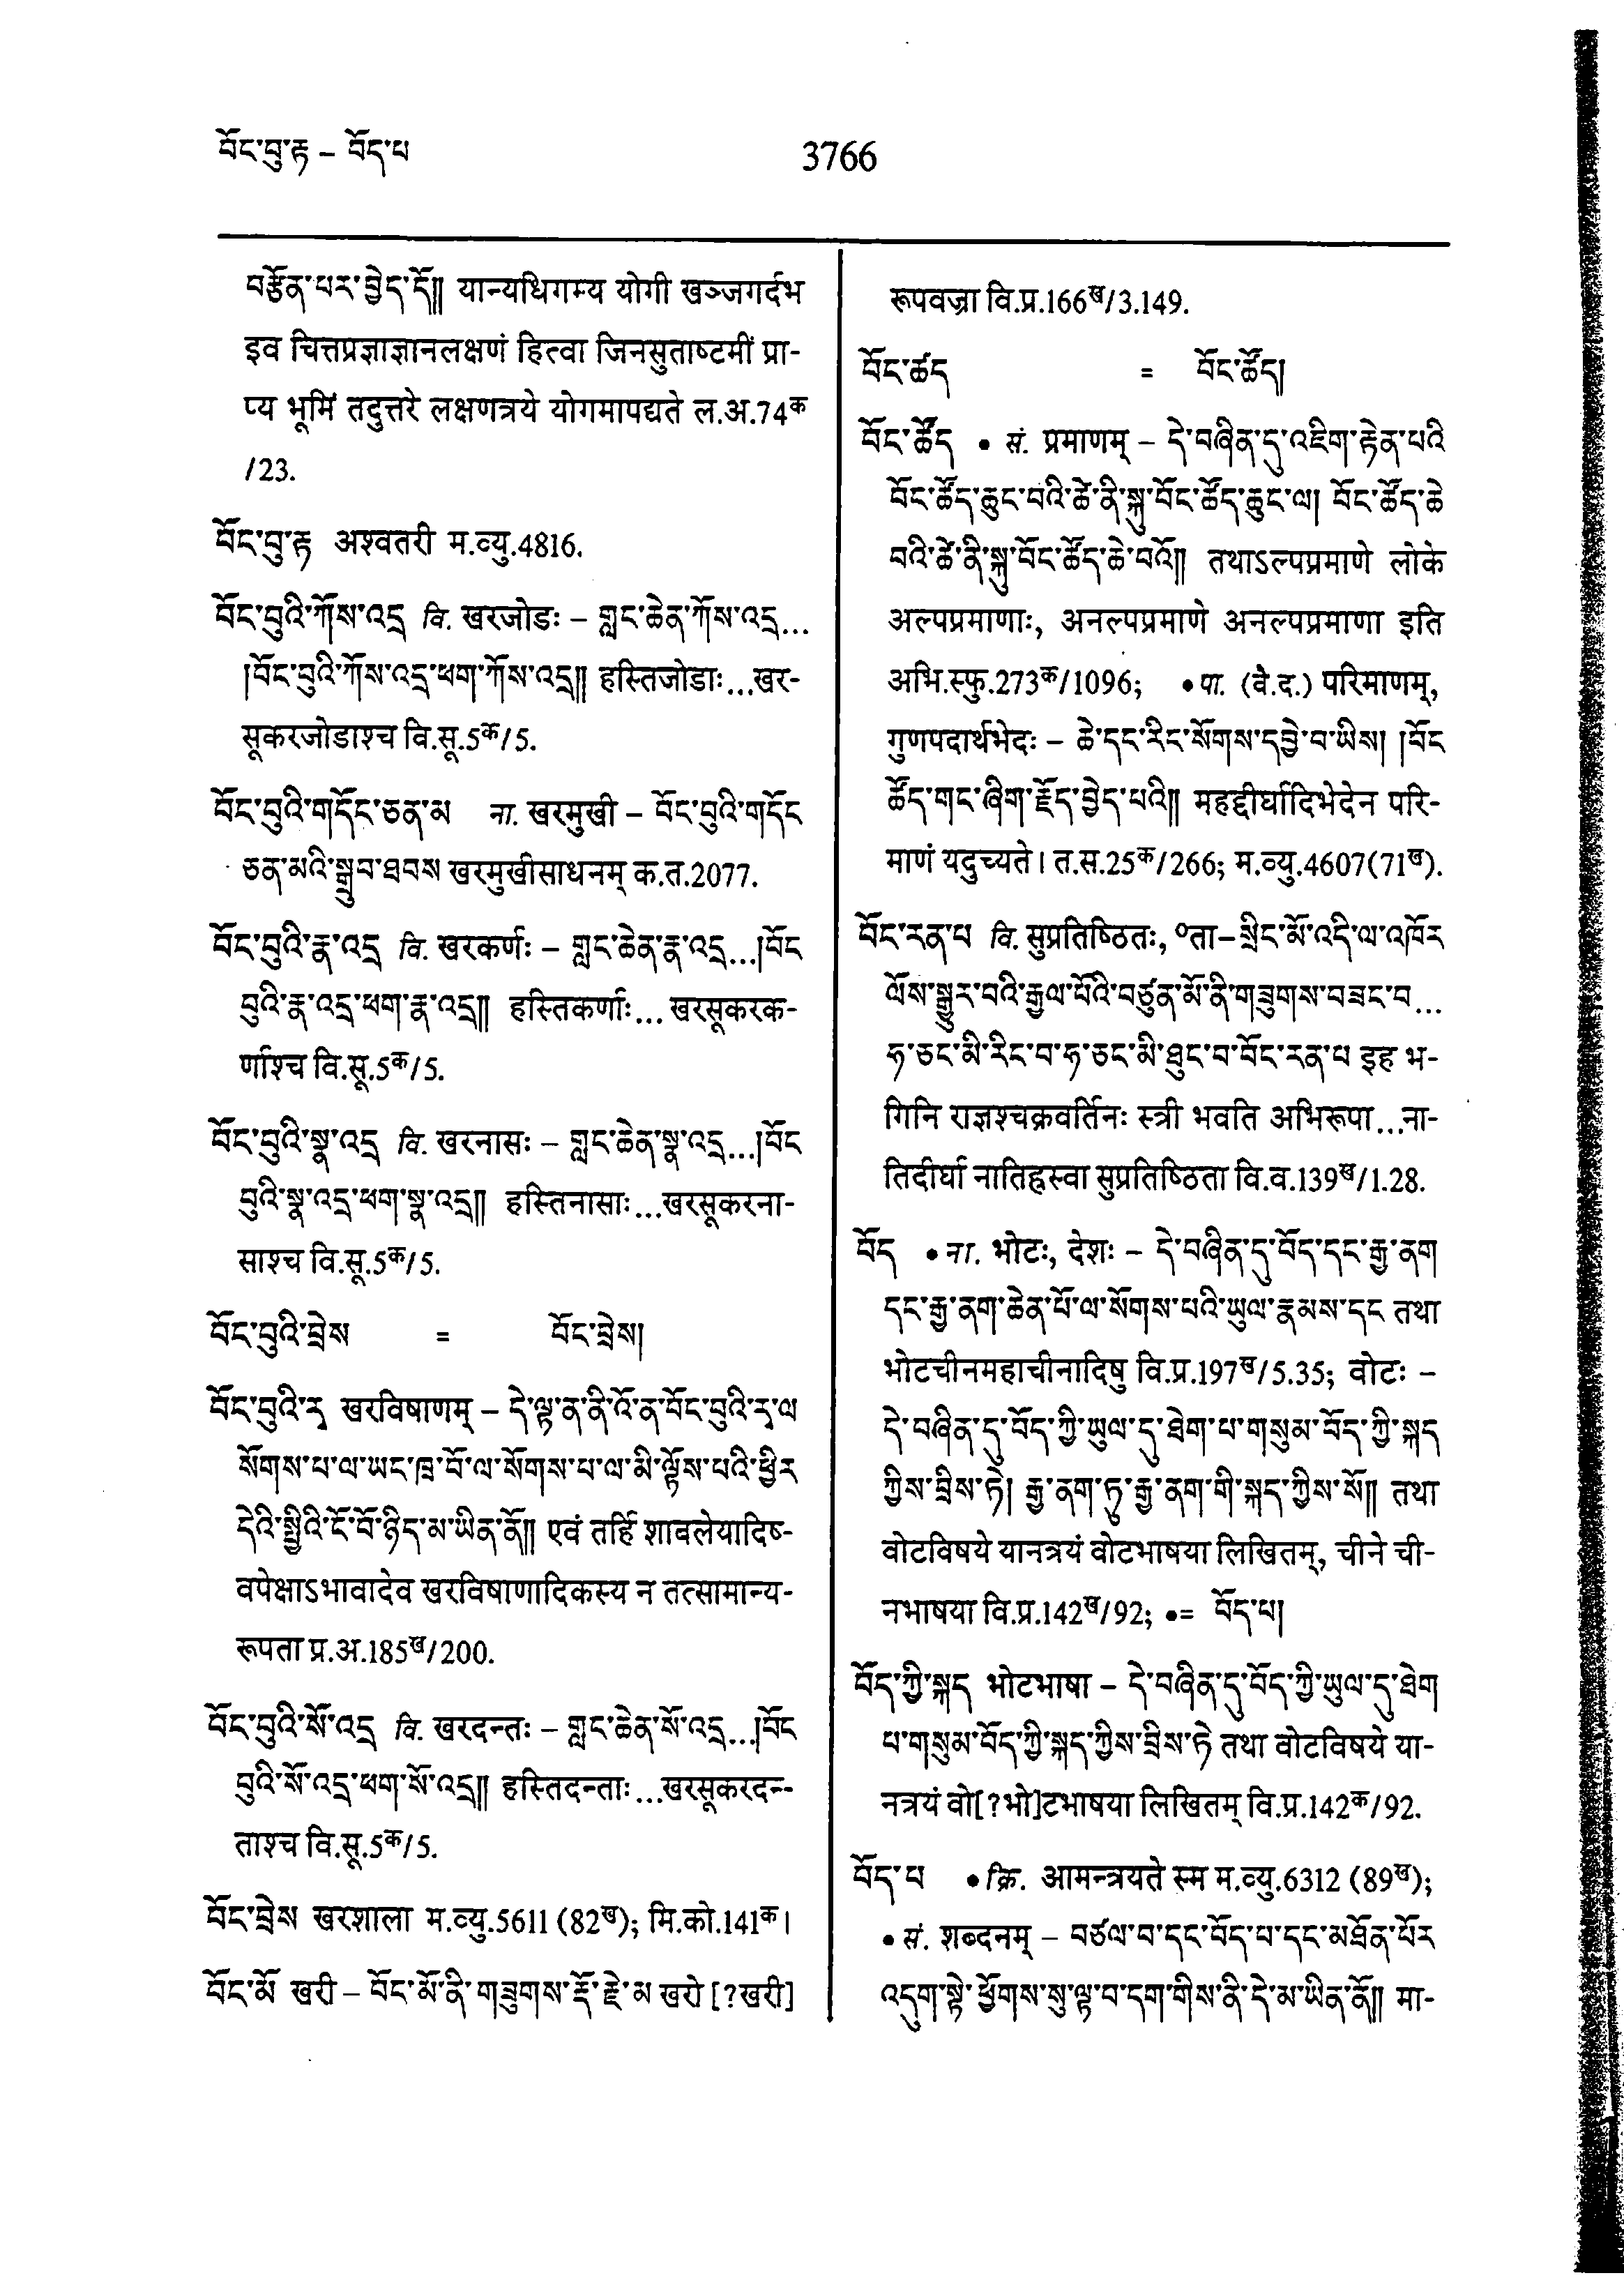 བོང་བུ་རྟ – བོད་པ
3766
བརྩོན་པར་བྱེད་དོ།། यान्यधिगम्य योगी खञ्जगर्दभ
इव चित्तप्रज्ञाज्ञानलक्षणं हित्वा जिनसुताष्टमीं प्रा-
प्य भूमिं तदुत्तरे लक्षणत्रये योगमापद्यते ल.अ.74क
/23.
བོང་བུ་རྟ अश्वतरी म.व्यु.4816.
བོང་བུའི་ཀོས་འདྲ वि. खरजोडः – གླང་ཆེན་ཀོས་འདྲ...
།བོང་བུའི་ཀོས་འདྲ་ཕག་ཀོས་འདྲ།། हस्तिजोडाः...खर-
सूकरजोडाश्च वि.सू.5क/5.
བོང་བུའི་གདོང་ཅན་མ ना. खरमुखी – བོང་བུའི་གདོང
ཅན་མའི་སྒྲུབ་ཐབས खरमुखीसाधनम् क.त.2077.
བོང་བུའི་རྣ་འདྲ वि. खरकर्णः – གླང་ཆེན་རྣ་འདྲ...།བོང
བུའི་རྣ་འདྲ་ཕག་རྣ་འདྲ།། हस्तिकर्णाः... खरसूकरक-
र्णाश्च वि.सू.5क/5.
བོང་བུའི་སྣ་འདྲ वि. खरनासः – གླང་ཆེན་སྣ་འདྲ...།བོང
བུའི་སྣ་འདྲ་ཕག་སྣ་འདྲ།། हस्तिनासाः...खरसूकरना-
साश्च वि.सू.5क/5.
བོང་བུའི་བྲེས = བོང་བྲེས།
བོང་བུའི་རྭ खरविषाणम् – དེ་ལྟ་ན་ནི་འོ་ན་བོང་བུའི་རྭ་ལ
སོགས་པ་ལ་ཡང་ཁྲ་བོ་ལ་སོགས་པ་ལ་མི་ལྟོས་པའི་ཕྱིར
དེའི་སྤྱིའི་ངོ་བོ་ཉིད་མ་ཡིན་ནོ།། एवं तर्हि शाबलेयादिष्-
वपेक्षाऽभावादेव खरविषाणादिकस्य न तत्सामान्य-
रूपता प्र.अ.185ख/200.
བོང་བུའི་སོ་འདྲ वि. खरदन्तः – གླང་ཆེན་སོ་འདྲ...།བོང
བུའི་སོ་འདྲ་ཕག་སོ་འདྲ།། हस्तिदन्ताः...खरसूकरदन्-
ताश्च वि.सू.5क/5.
བོང་བྲེས खरशाला म.व्यु.5611 (82ख); मि.को.141क।
བོང་མོ खरी – བོང་མོ་ནི་གཟུགས་རྡོ་རྗེ་མ खरो [?खरी]
रूपवज्रा वि.प्र.166ख/3.149.
བོང་ཚད = བོང་ཚོད།
བོང་ཚོད • सं. प्रमाणम् – དེ་བཞིན་དུ་འཇིག་རྟེན་པའི
བོང་ཚོད་ཆུང་བའི་ཚེ་ནི་སྐུ་བོང་ཚོད་ཆུང་ལ། བོང་ཚོད་ཆེ
བའི་ཚེ་ནི་སྐུ་བོང་ཚོད་ཆེ་བའོ།། तथाऽल्पप्रमाणे लोके
अल्पप्रमाणाः, अनल्पप्रमाणे अनल्पप्रमाणा इति
अभि.स्फु.273क/1096; • पा. (वै.द.) परिमाणम्,
गुणपदार्थभेदः – ཆེ་དང་རིང་སོགས་དབྱེ་བ་ཡིས། །བོང
ཚོད་གང་ཞིག་རྗོད་བྱེད་པའི།། महद्दीर्घादिभेदेन परि-
माणं यदुच्यते। त.स.25क/266; म.व्यु.4607(71ख).
བོང་རན་པ वि. सुप्रतिष्ठितः, ०ता– སྲིང་མོ་འདི་ལ་འཁོར
ལོས་སྒྱུར་བའི་རྒྱལ་པོའི་བཙུན་མོ་ནི་གཟུགས་བཟང་བ...
ཧ་ཅང་མི་རིང་བ་ཧ་ཅང་མི་ཐུང་བ་བོང་རན་པ इह भ-
गिनि राज्ञश्चक्रवर्तिनः स्त्री भवति अभिरूपा...ना-
तिदीर्घा नातिह्रस्वा सुप्रतिष्ठिता वि.व.139ख/1.28.
བོད • ना. भोटः, देशः – དེ་བཞིན་དུ་བོད་དང་རྒྱ་ནག
དང་རྒྱ་ནག་ཆེན་པོ་ལ་སོགས་པའི་ཡུལ་རྣམས་དང तथा
भोटचीनमहाचीनादिषु वि.प्र.197ख/5.35; वोटः –
དེ་བཞིན་དུ་བོད་ཀྱི་ཡུལ་དུ་ཐེག་པ་གསུམ་བོད་ཀྱི་སྐད
ཀྱིས་བྲིས་ཏེ། རྒྱ་ནག་ཏུ་རྒྱ་ནག་གི་སྐད་ཀྱིས་སོ།། तथा
वोटविषये यानत्रयं वोटभाषया लिखितम्, चीने ची-
नभाषया वि.प्र.142ख/92; •= བོད་པ།
བོད་ཀྱི་སྐད भोटभाषा – དེ་བཞིན་དུ་བོད་ཀྱི་ཡུལ་དུ་ཐེག
པ་གསུམ་བོད་ཀྱི་སྐད་ཀྱིས་བྲིས་ཏེ तथा वोटविषये या-
नत्रयं वो[?भो]टभाषया लिखितम् वि.प्र.142क/92.
བོད་པ • क्रि. आमन्त्रयते स्म म.व्यु.6312 (89ख);
• सं. शब्दनम् – བཙལ་བ་དང་བོད་པ་དང་མཐོན་པོར
འདུག་སྟེ་ཕྱོགས་སུ་ལྟ་བ་དག་གིས་ནི་དེ་མ་ཡིན་ནོ།། मा-